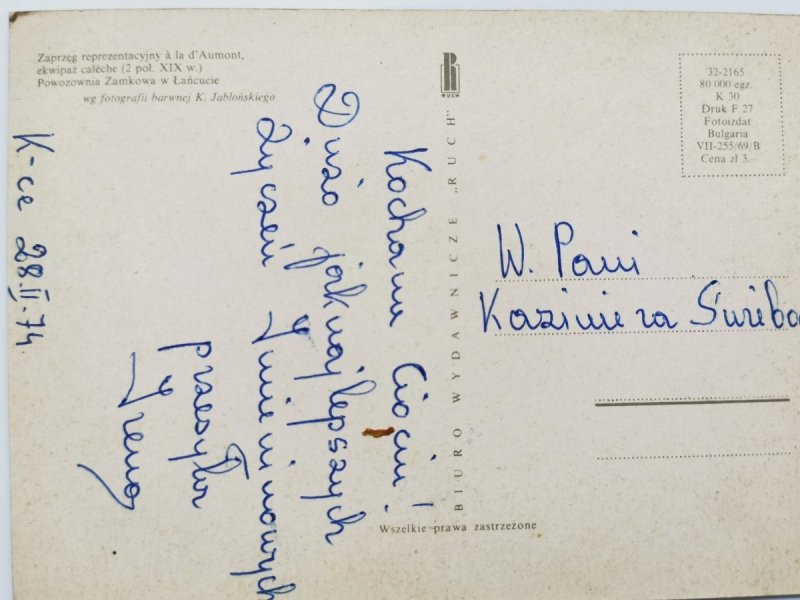 Zaprzęg reprezentacyjny à la d'Aumont,
ekwipaż calèche (2 poł. XIX w.)
Powozownia Zamkowa w Łańcucie
wg fotografii barwnej K. Jabłońskiego
K-ce 28.II.74.
Kochana Ciociu!
Dużo jaknajlepszych
życzeń Imieninowych
przesyła
Irena
RUCH
BIURO WYDAWNICZE „RUCH"
Wszelkie prawa zastrzeżone
32-2165
80 000 egz.
K 30
Druk F 27
Fotoizdat
Bulgaria
VII-255/69/B
Cena zł 3.-
W. Pani
Kazimiera